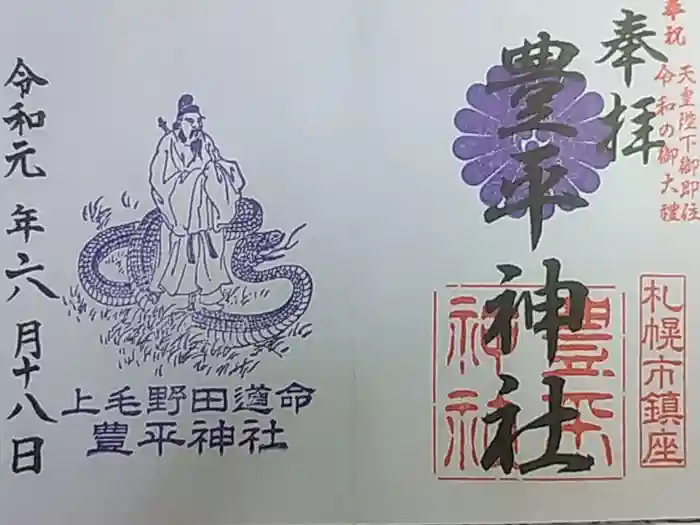 奉祝 天皇陛下御即位
令和の御大禮
奉拝
豊平神社
札幌市鎮座
豊平
神社
上毛野田道命
豊平神社
令和元年六月十八日